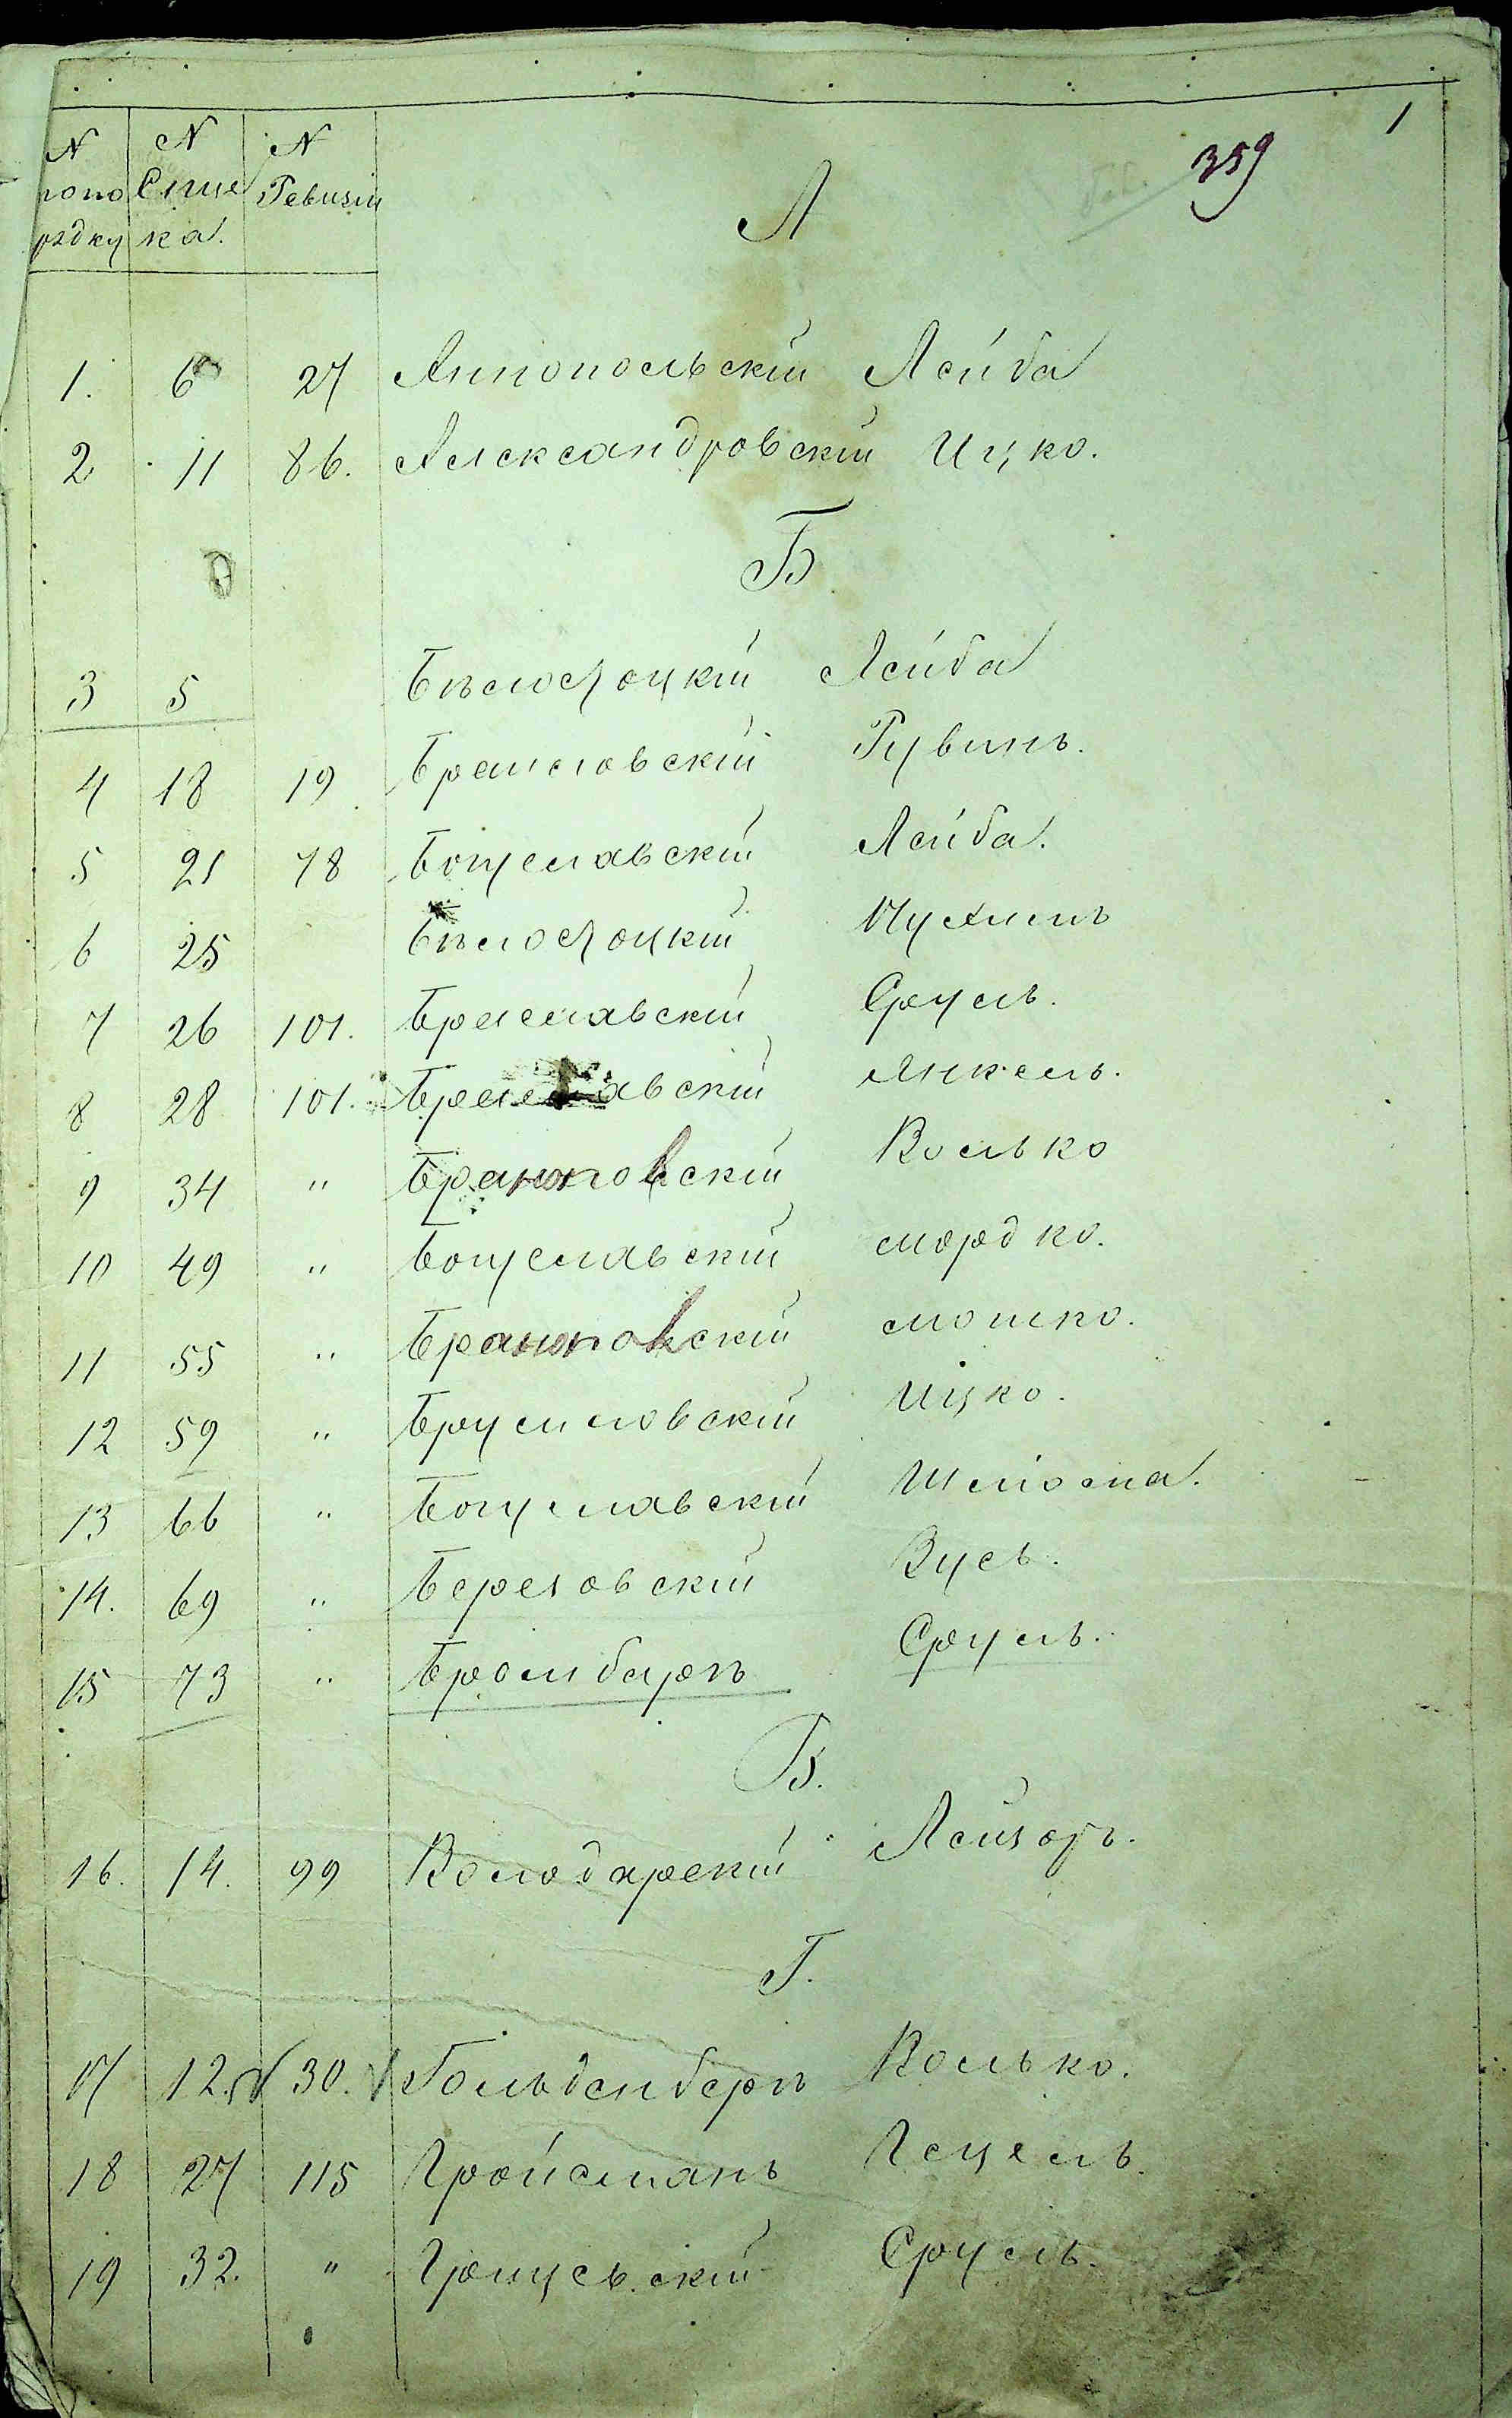 1
359
N попо рядку | N Списка. | N Ревизіи
А
1. 6 27 Аннопольскій Лейба
2 11 86. Александровскій Ицко.
Б
3 5 Бѣлостоцкій Лейба
4 18 19 Браиловскій Рувинъ.
5 21 78 Богуславскій Лейба.
6 25 Бѣлостоцкій Мусхилъ
7 26 101. Бреславскій Сруль.
8 28 101. Бреславскій Янкель.
9 34 " Волько
10 49 " Богуславскій Мордко.
11 55 " Мошко.
12 59 " Брусиловскій Ицко.
13 66 " Богуславскій Шліома.
14. 69 " Березовскій Зусь.
15 73 " Бромбергъ Сруль.
В.
16. 14. 99 Володарскій Лейзоръ.
Г.
17 12. 30. Гольденбергъ Волько.
18 27 115 Гройсманъ Гецель.
19 32. " Сруль.